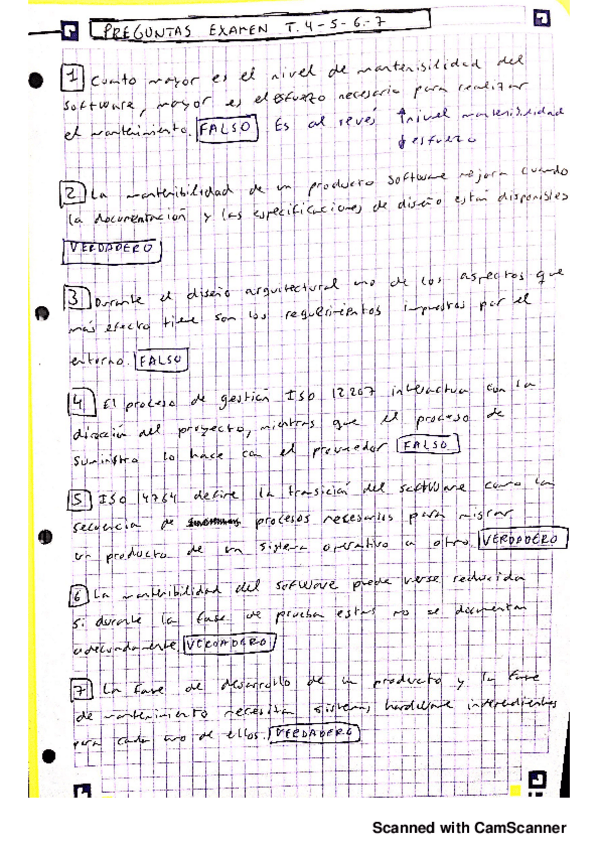 PREGUNTAS EXAMEN T.4-5-6-7
1 Cuanto mayor es el nivel de mantenibilidad del
software, mayor es el esfuerzo necesario para realizar
el mantenimiento. FALSO Es al revés ↑nivel mantenibilidad
↓esfuerzo
2. La mantenibilidad de un producto software mejora cuando
la documentación y las especificaciones de diseño están disponibles
VERDADERO
3 Durante el diseño arquitectural uno de los aspectos que
más efecto tiene son los requerimientos impuestos por el
entorno. FALSO
4 El proceso de gestión ISO 12.207 interactua con la
dirección del proyecto, mientras que el proceso de
suministro lo hace con el proveedor FALSO
5. ISO 14764 define la transición del software como la
secuencia de procesos necesarios para migrar
un producto de un sistema operativo a otro. VERDADERO
6 La mantenibilidad del software puede verse reducida
si durante la fase de prueba estas no se documentan
adecuadamente. VERDADERO
7 La fase de desarrollo de un producto y la fase
de mantenimiento necesitan sistemas hardware independientes
para cada uno de ellos. VERDADERO
Scanned with CamScanner